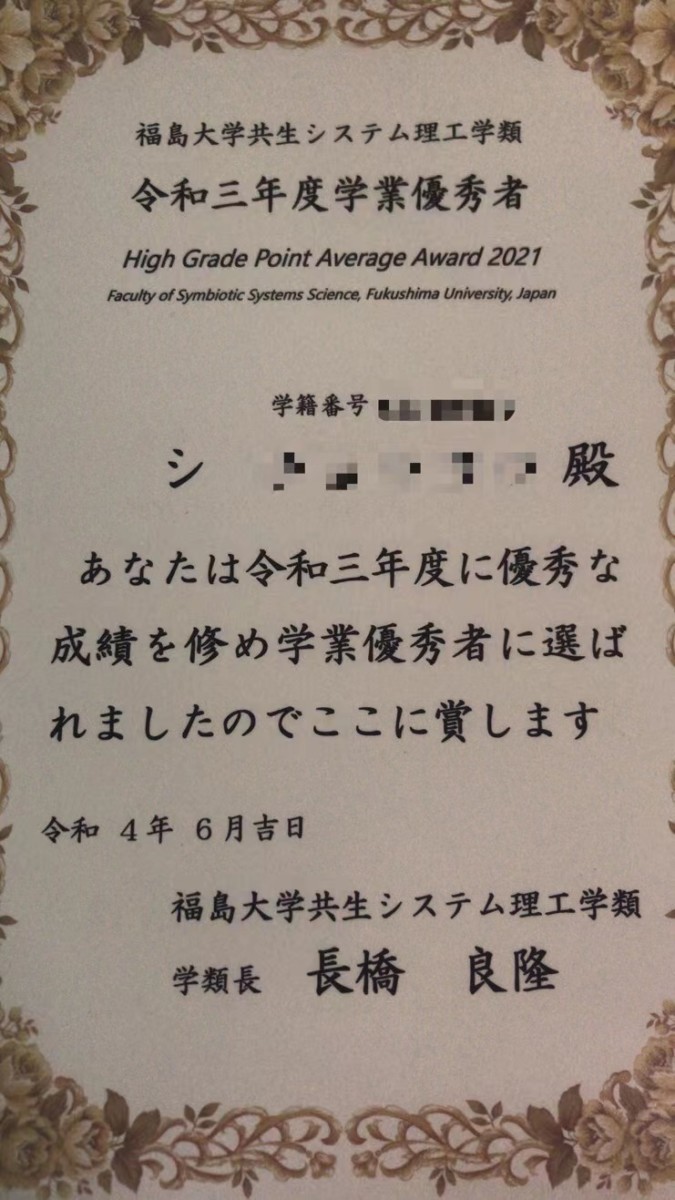 福島大学共生システム理工学類
令和三年度学業優秀者
High Grade Point Average Award 2021
Faculty of Symbiotic Systems Science, Fukushima University, Japan
学籍番号
シ 殿
あなたは令和三年度に優秀な
成績を修め学業優秀者に選ば
れましたのでここに賞します
令和 4年 6月吉日
福島大学共生システム理工学類
学類長 長橋 良隆